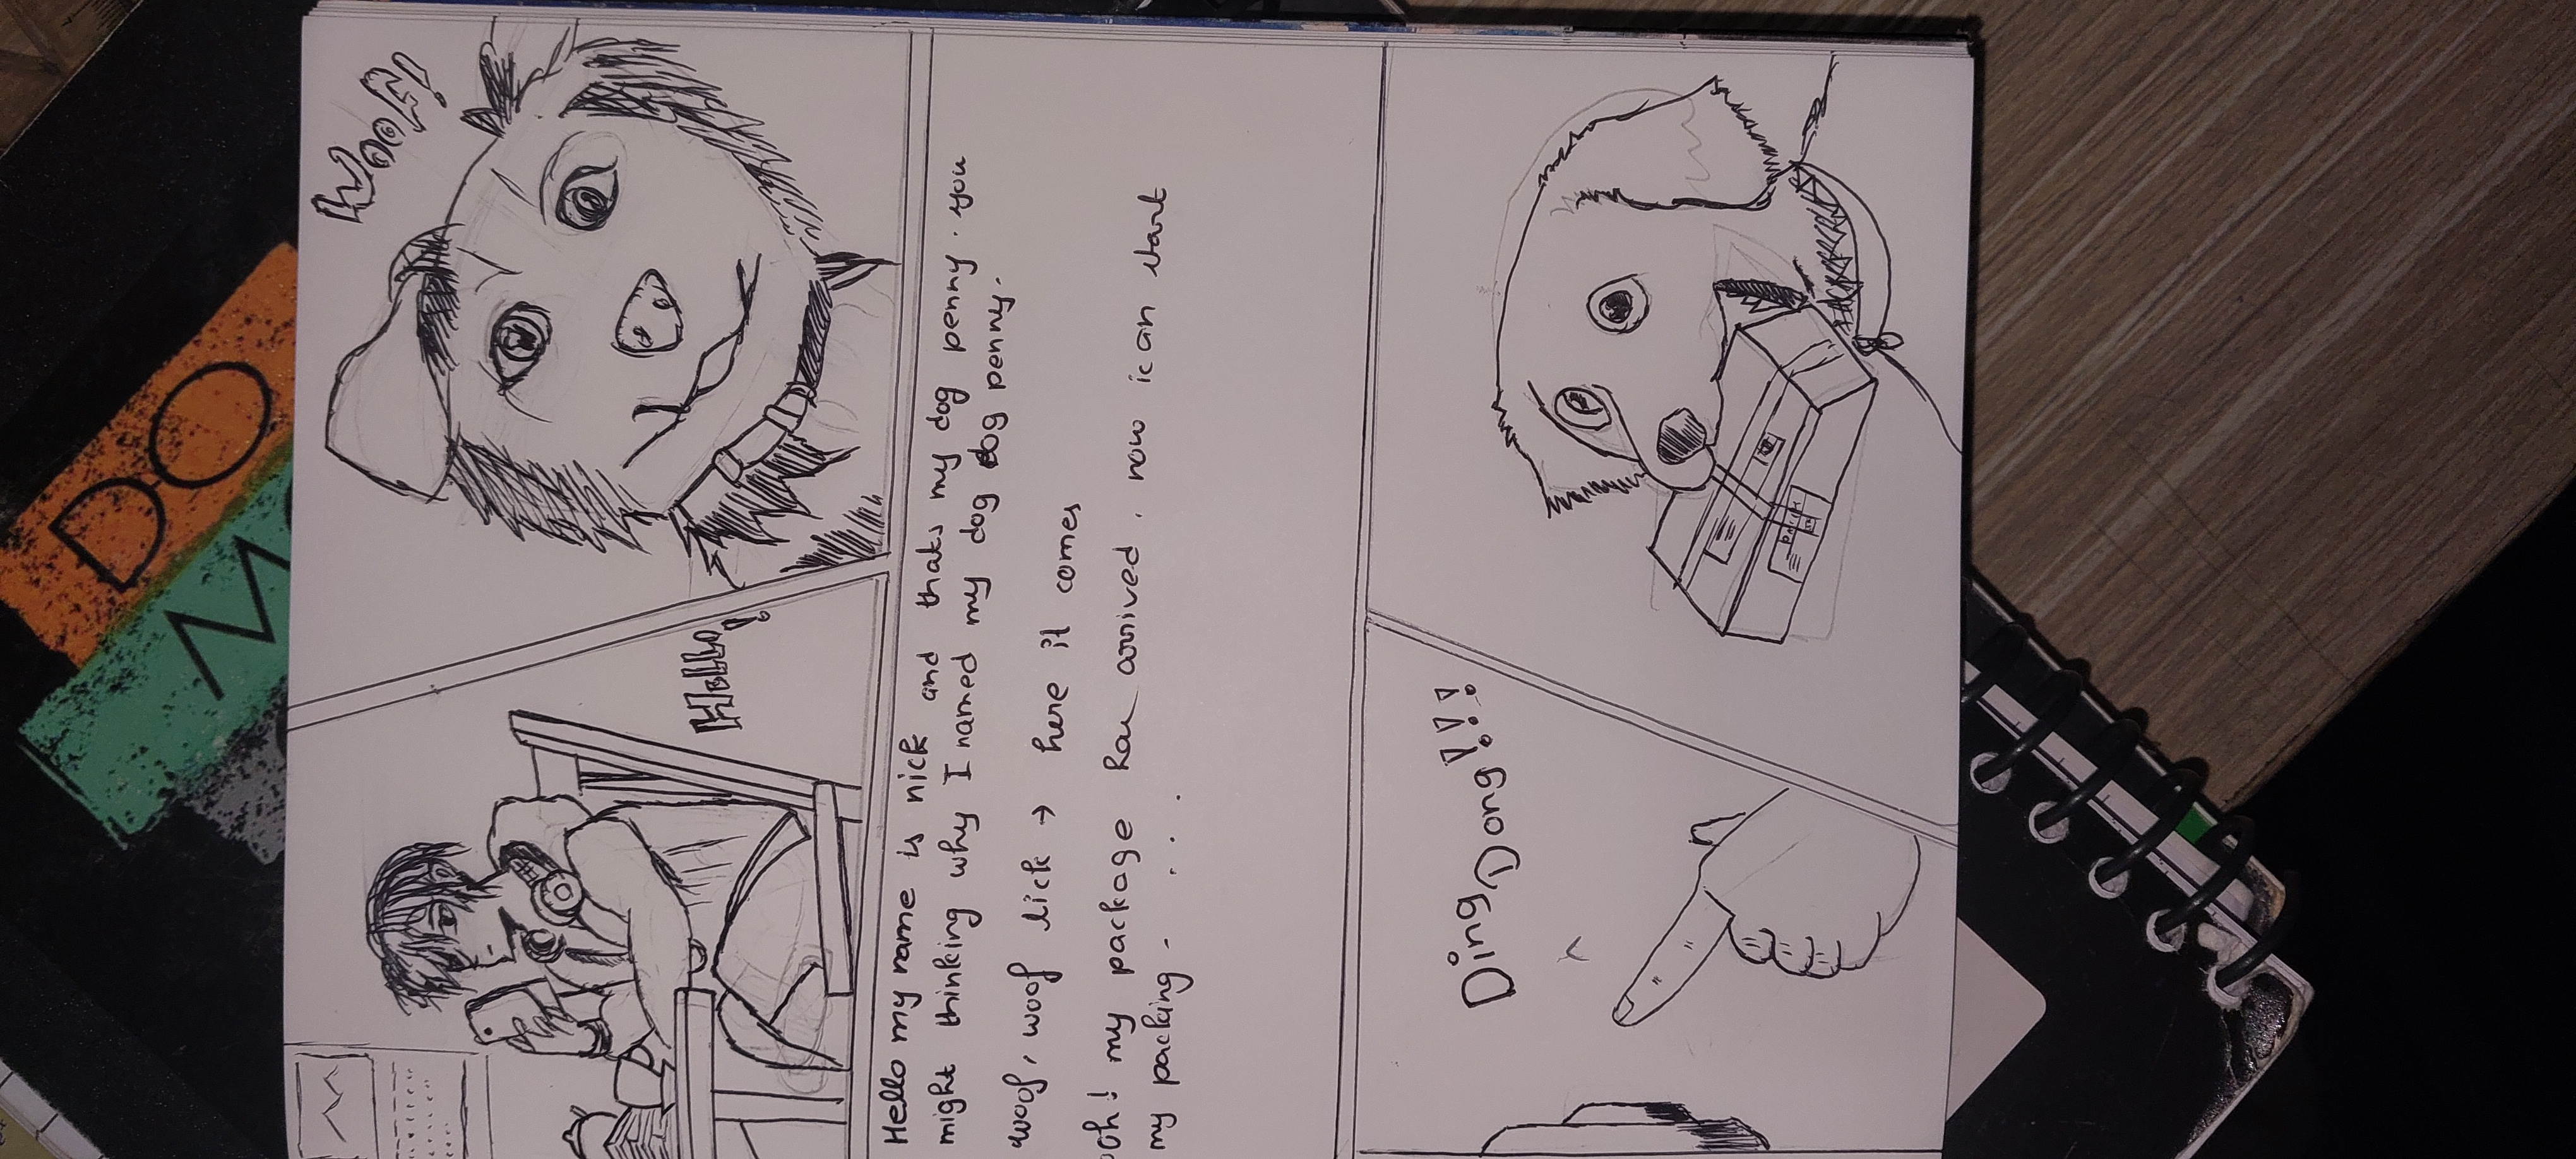 DO
MO
WOOF!
HELLO!
Hello my name is nick and thats my dog penny. you
might thinking why I named my dog dog penny.
woof, woof lick → here it comes
ooh! my package has arrived. now ican start
my packing. ...
Ding Dong!!!